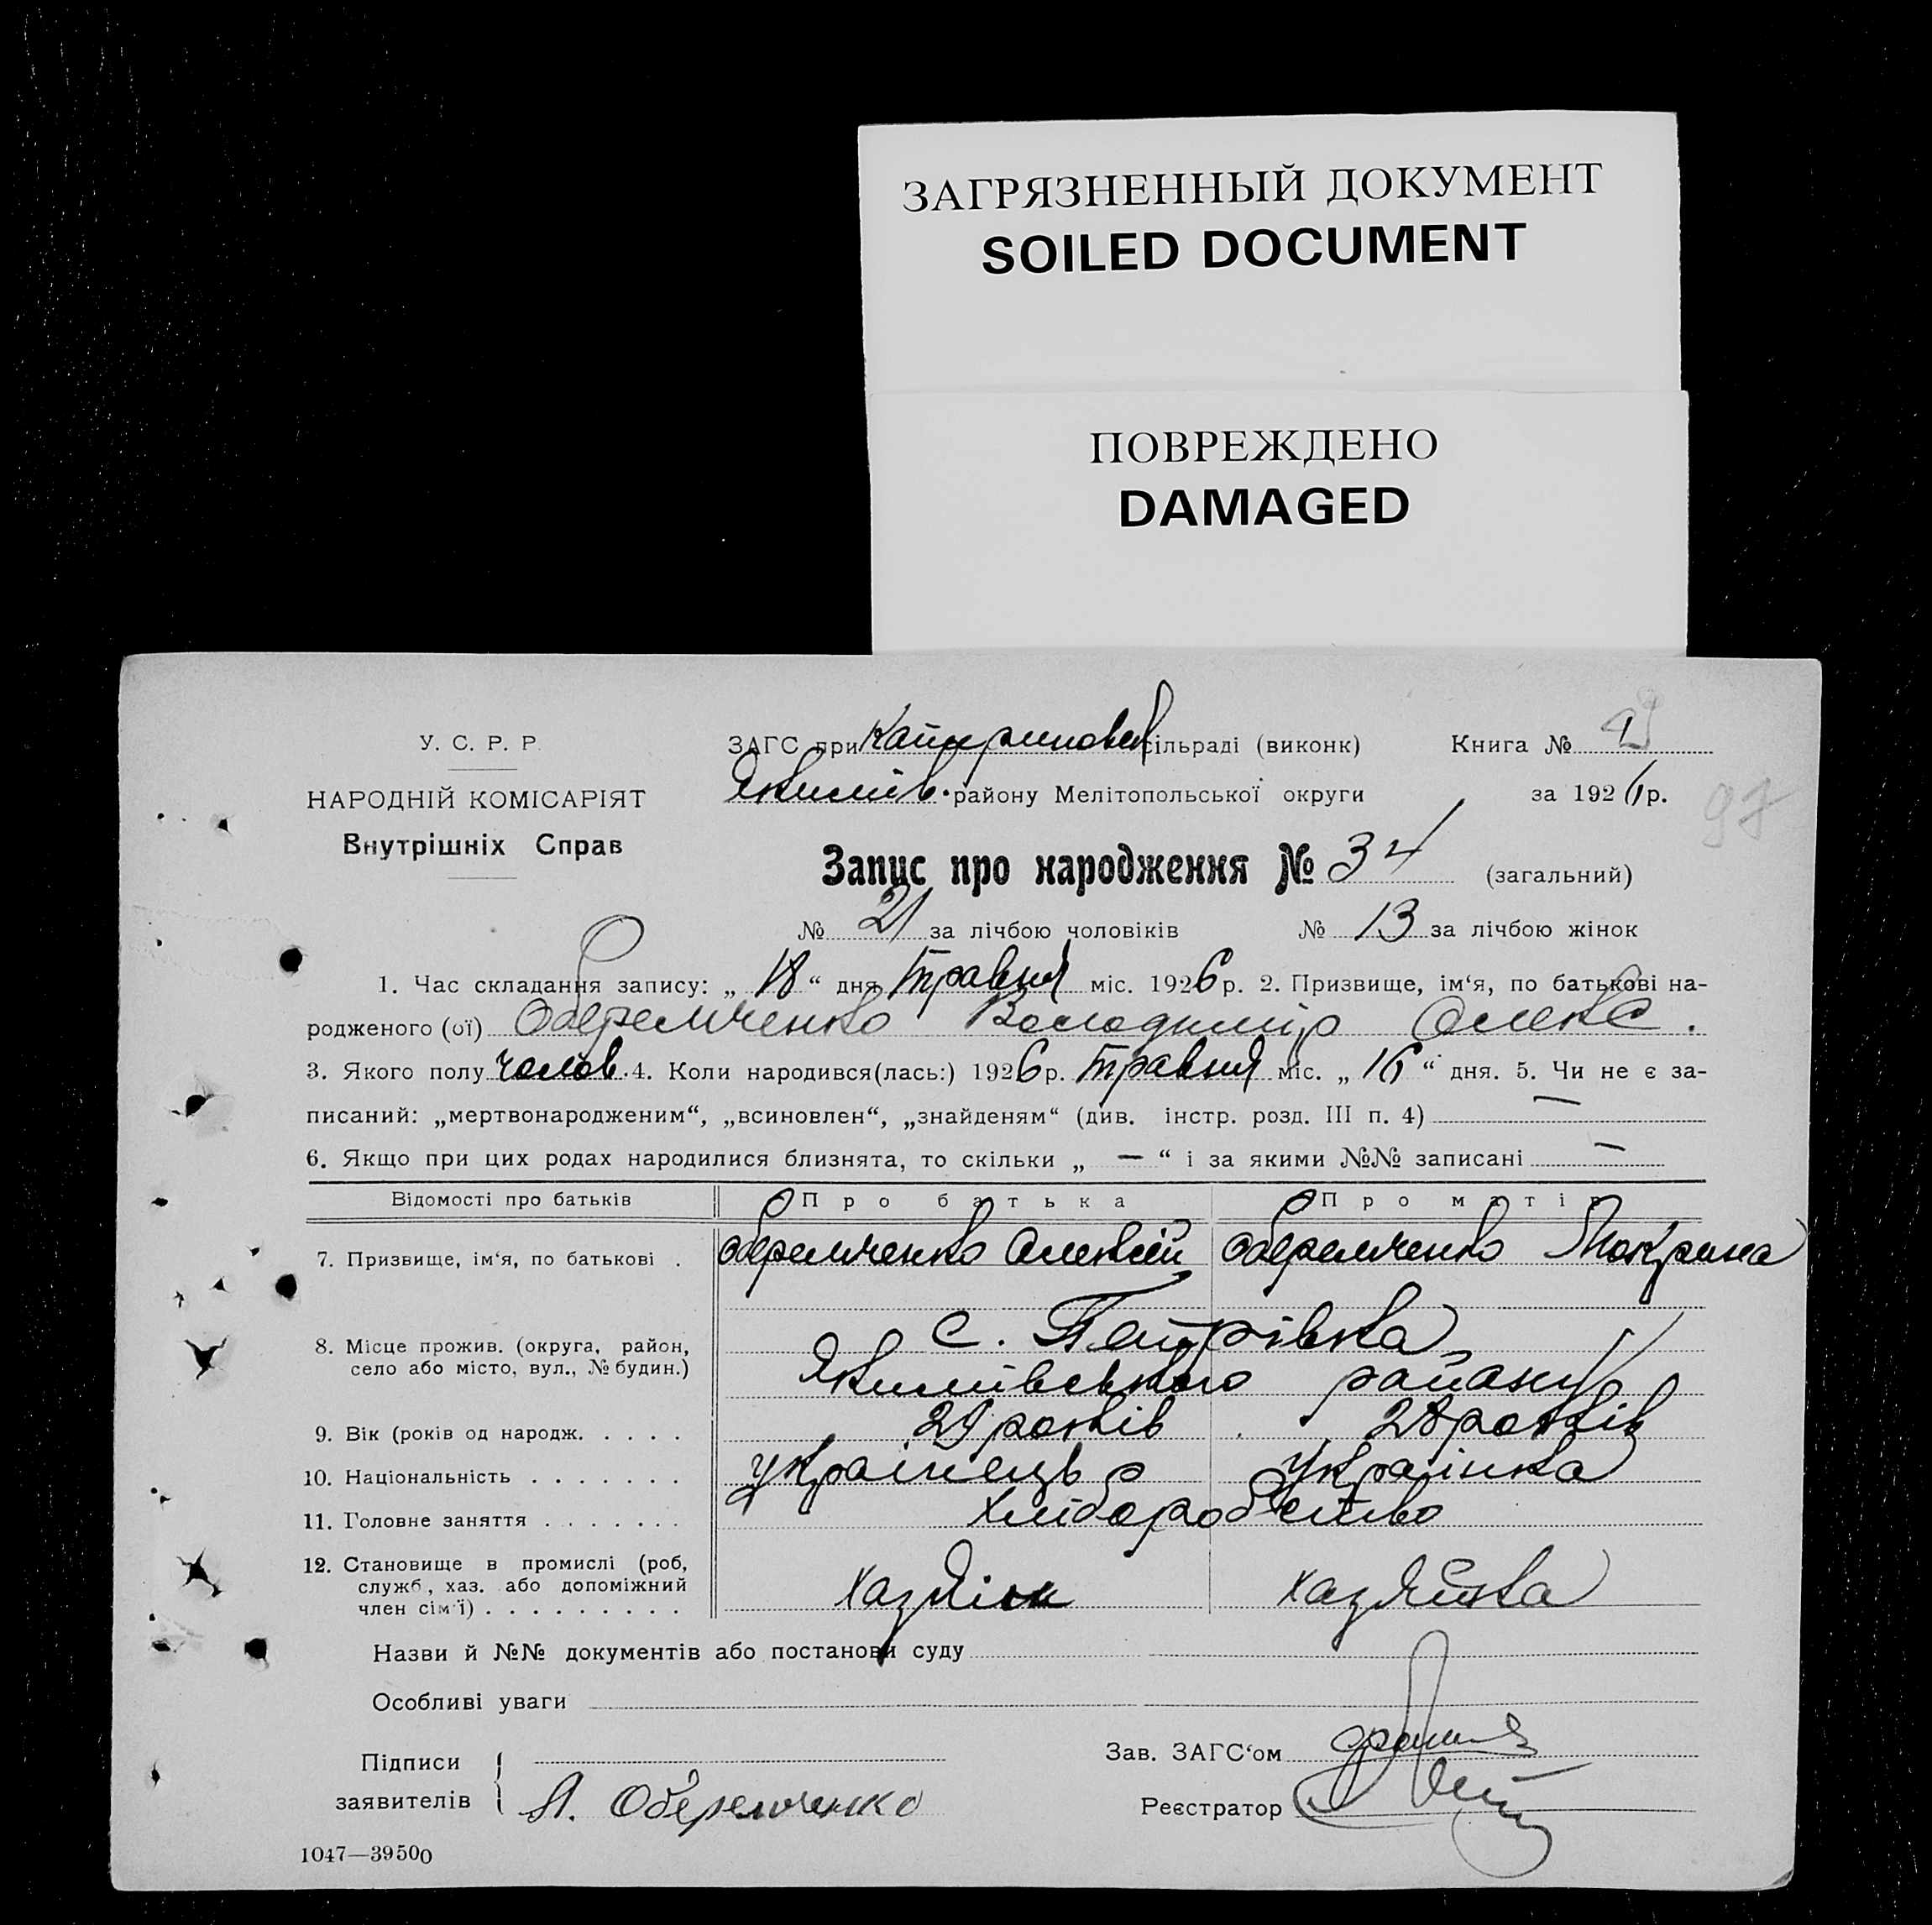 ЗАГРЯЗНЕННЫЙ ДОКУМЕНТ
SOILED DOCUMENT
ПОВРЕЖДЕНО
DAMAGED
У. С. Р. Р.
НАРОДНІЙ КОМІСАРІЯТ
Внутрішніх Справ
ЗАГС при сільраді (виконк) Книга №
Якимів. району Мелітопольської округи за 1926 р.
97
Запис про народження № 34 (загальний)
№ 21 за лічбою чоловіків № 13 за лічбою жінок
1. Час складання запису: „ 18 “ дня травня міс. 1926 р. 2. Призвище, ім‘я, по батькові на-
родженого (ої) Оберемченко Володимір Олекс.
3. Якого полу чолов. 4. Коли народився(лась:) 1926 р. травня міс. „ 16 “ дня. 5. Чи не є за-
писаний: „мертвонародженим“, „всиновлен“, „знайденям“ (див. інстр. розд. III п. 4) —
6. Якщо при цих родах народилися близнята, то скільки „ — “ і за якими №№ записані —
Відомості про батьків Про батька Про матір
7. Призвище, ім‘я, по батькові . Оберемченко Олексій Оберемченко Мокрина
с. Петрівка
8. Місце прожив. (округа, район,
село або місто, вул., № будин.) Якимівського району
9. Вік (років од народж. . . . . 29 років 28 років
10. Національність . . . . . . . українець українка
11. Головне заняття . . . . . . . хліборобство
12. Становище в промислі (роб,
служб, хаз. або допоміжний
член сім‘ї) . . . . . . . . . хазяін хазяйка
Назви й №№ документів або постанови суду
Особливі уваги
Підписи
заявителів А. Оберемченко
Зав. ЗАГС‘ом
Реєстратор
1047—39500